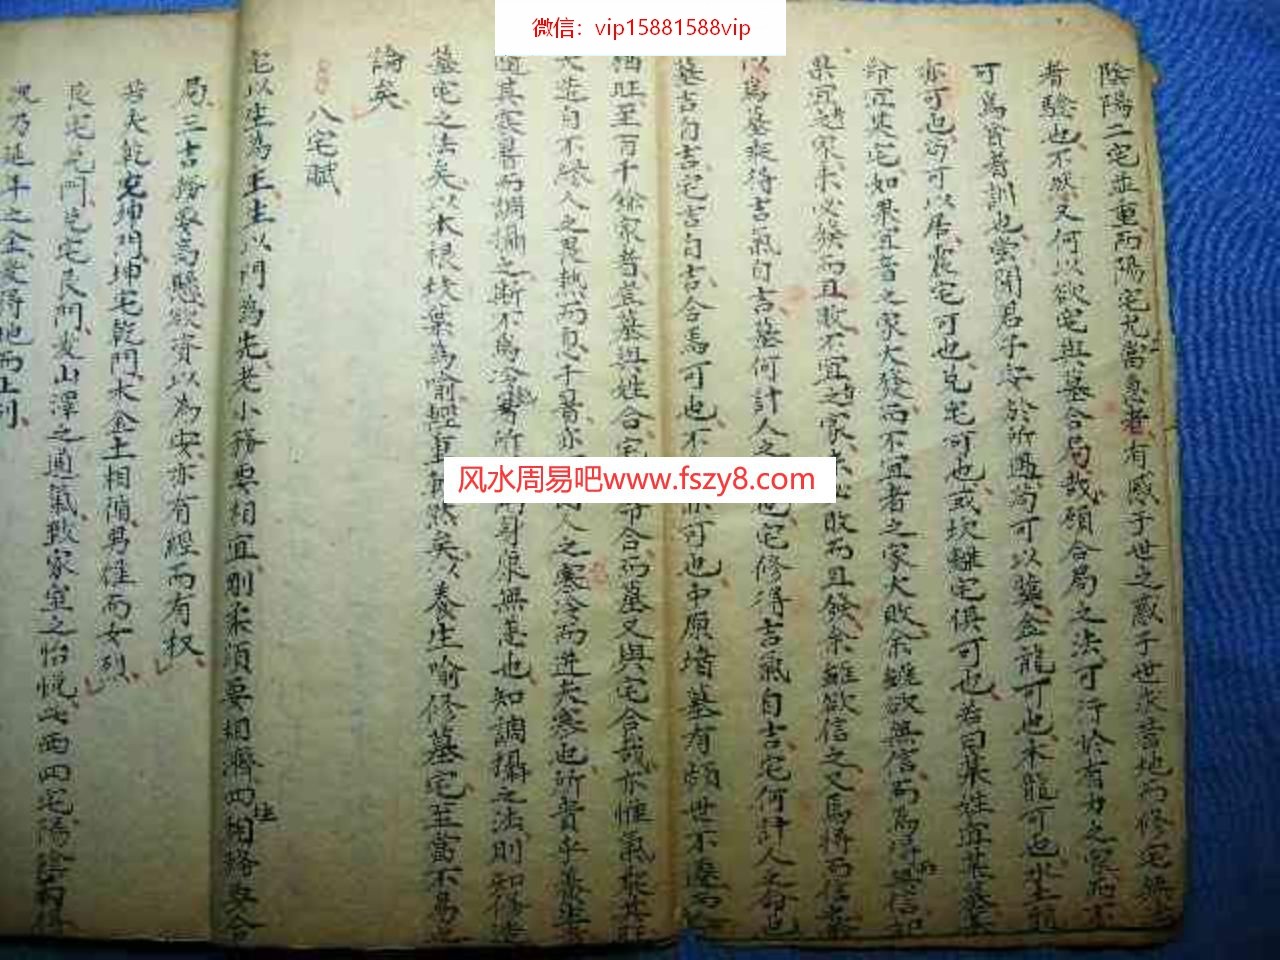 微信：vip15881588vip
陰陽二宅並重而陽宅尤當急者有感于世之惑于世求吉地而修宅無
者驗也不然又何以欲宅與墓合局哉願合局之法可行於有力之家而不
可為者訓也嘗聞君子安於所遇向可以葬金龍可也木龍可也水土龍
亦可也向可以居震宅可也兌宅可也或坎離宅俱可也若曰某姓宜某墓某
給宜某宅如果宜者之家大發而不宜者之家大敗余雖欲無信而為得無信
果宜之家未必發而且敗不宜之家未必敗而且發余雖欲信之又焉得而信
以為墓發得吉氣自吉墓何計人之 也宅修得吉氣自吉宅何計人之命也
墓吉自吉宅吉自吉合焉可也不 亦可也中原堵墓有頗世不遷而
酒旺至百千餘家者豈墓與姓合宅 合而墓又與宅合哉亦惟氣
大造自不 人之畏熱而息于暑亦 人之寒冷而進夫寒也所貴乎養生
適其寒暑而調攝之斯不為冷暑所 身康無恙也知調攝之法則知修造
墓宅之法矣以木根坎葉為喻 然矣以養生喻修墓宅至當不易之
論矣
八宅賦
宅以生為主主以門為先老小務要相宜剛柔須要相濟四 相 要合
局三吉務要高懸欲資以為安亦有經而有权
若夫乾宅坤門坤宅乾門木金土相隨男 而女烈
艮宅兌門兌宅艮門 山澤之通氣致家室之怡悅 西四宅陽陰
况乃延年之金 得地而上列
风水周易吧www.fszy8.com